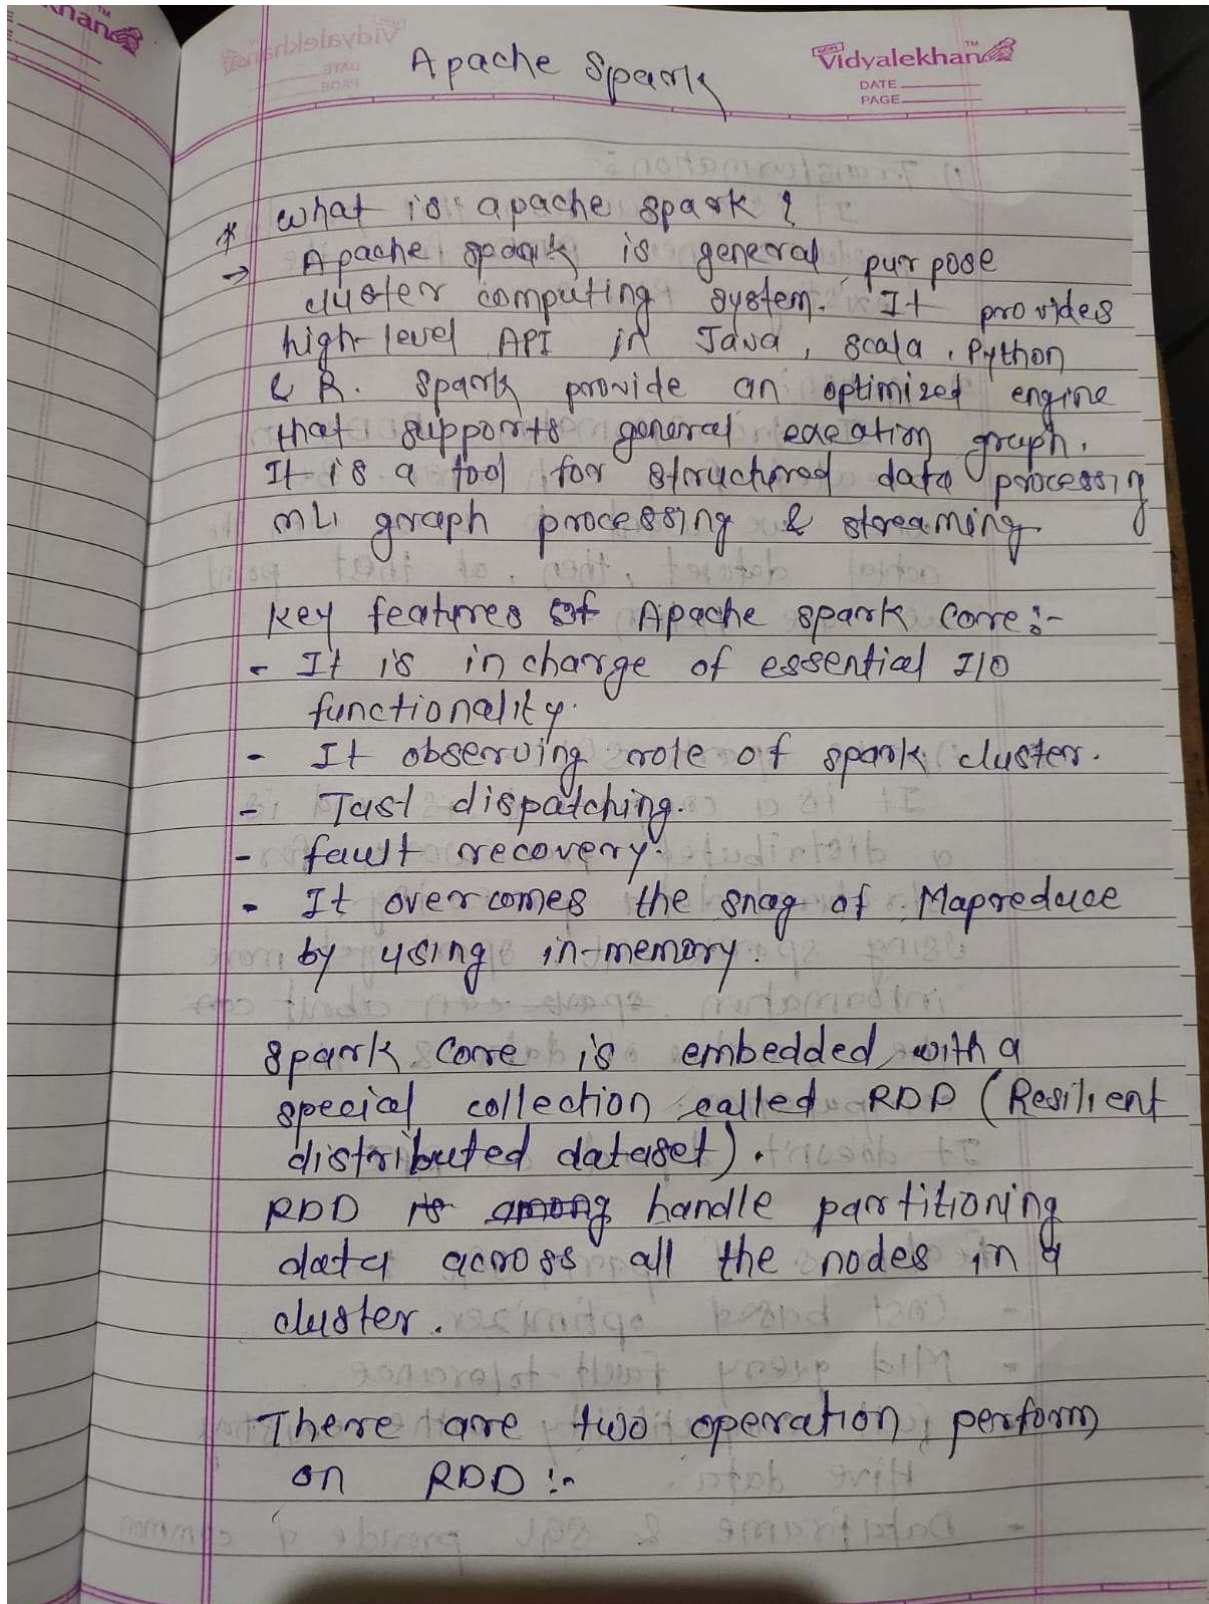 Apache Spark
Vidyalekhan™
DATE
PAGE
* what is apache spark ?
→ Apache spark is general purpose
cluster computing system. It provides
high-level API in Java, scala, Python
& R. spark provide an optimized engine
that supports general graph.
It is a tool for structured data processing
ML, graph processing & streaming
key features of Apache spark core:-
- It is in charge of essential I/O
functionality.
- It observing role of spark cluster.
- Tast dispatching.
- fault recovery.
- It overcomes the snag of Mapreduce
by using in-memory.
spark core is embedded with a
special collection called RDD (Resilient
distributed dataset).
RDD is among handle partitioning
data across all the nodes in a
cluster.
There are two operation perform
on RDD :-